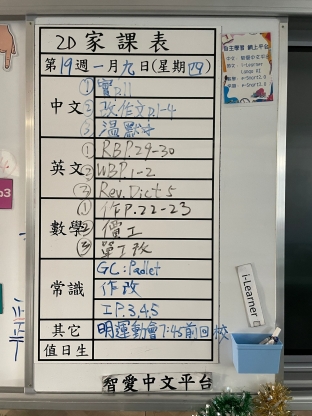 2D 家課表
第19週一月九日(星期四)
中文 ① 實
② 改作文2 1-4
③ 溫默
英文 ① RBP.29-30
② WBP.1-2
③ Rev. Dict 5
數學 ① 作P.22-23
② 補工
③ 單丁改
常識 GC: Padlet
作改
I P.3,4,5
其它 明運動會7:45前回校
值日生
智愛中文平台
i-Learner
自主學習 網上平台